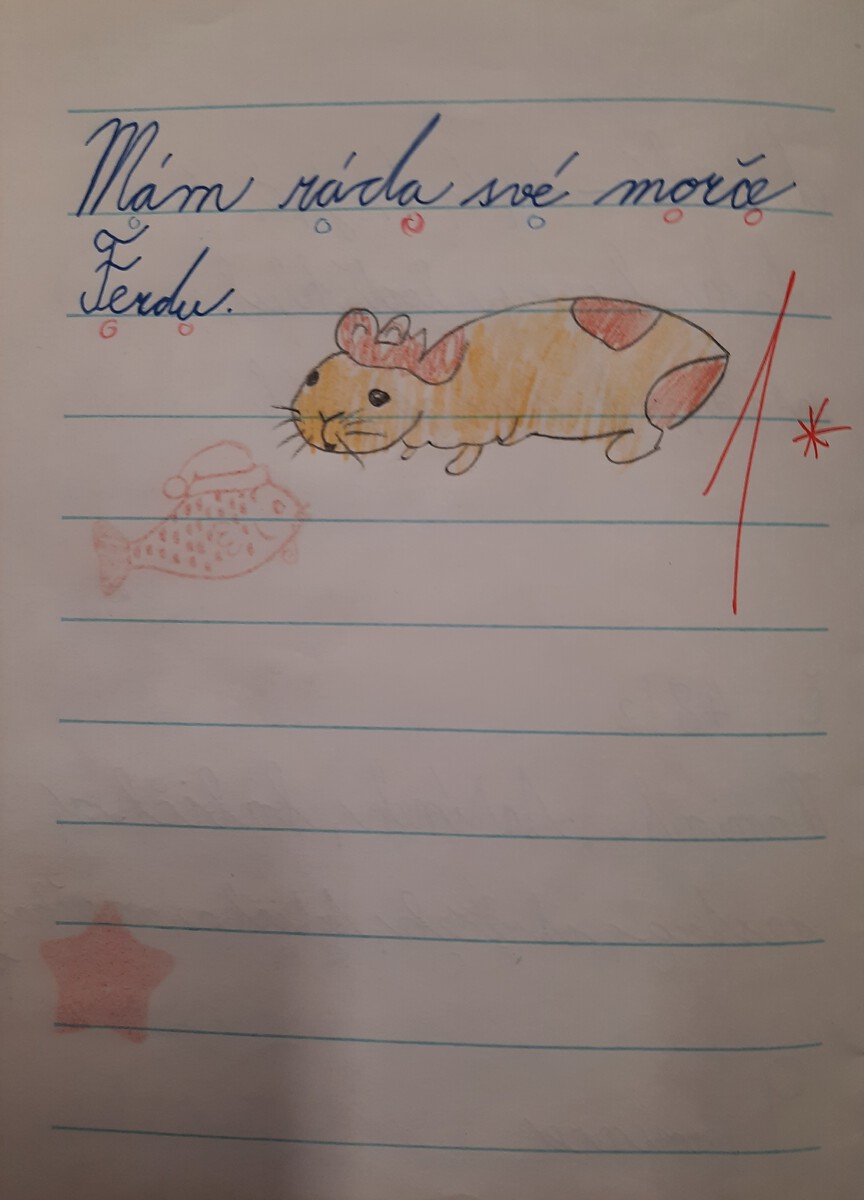 Mám ráda své morče
Ferdu.
1*